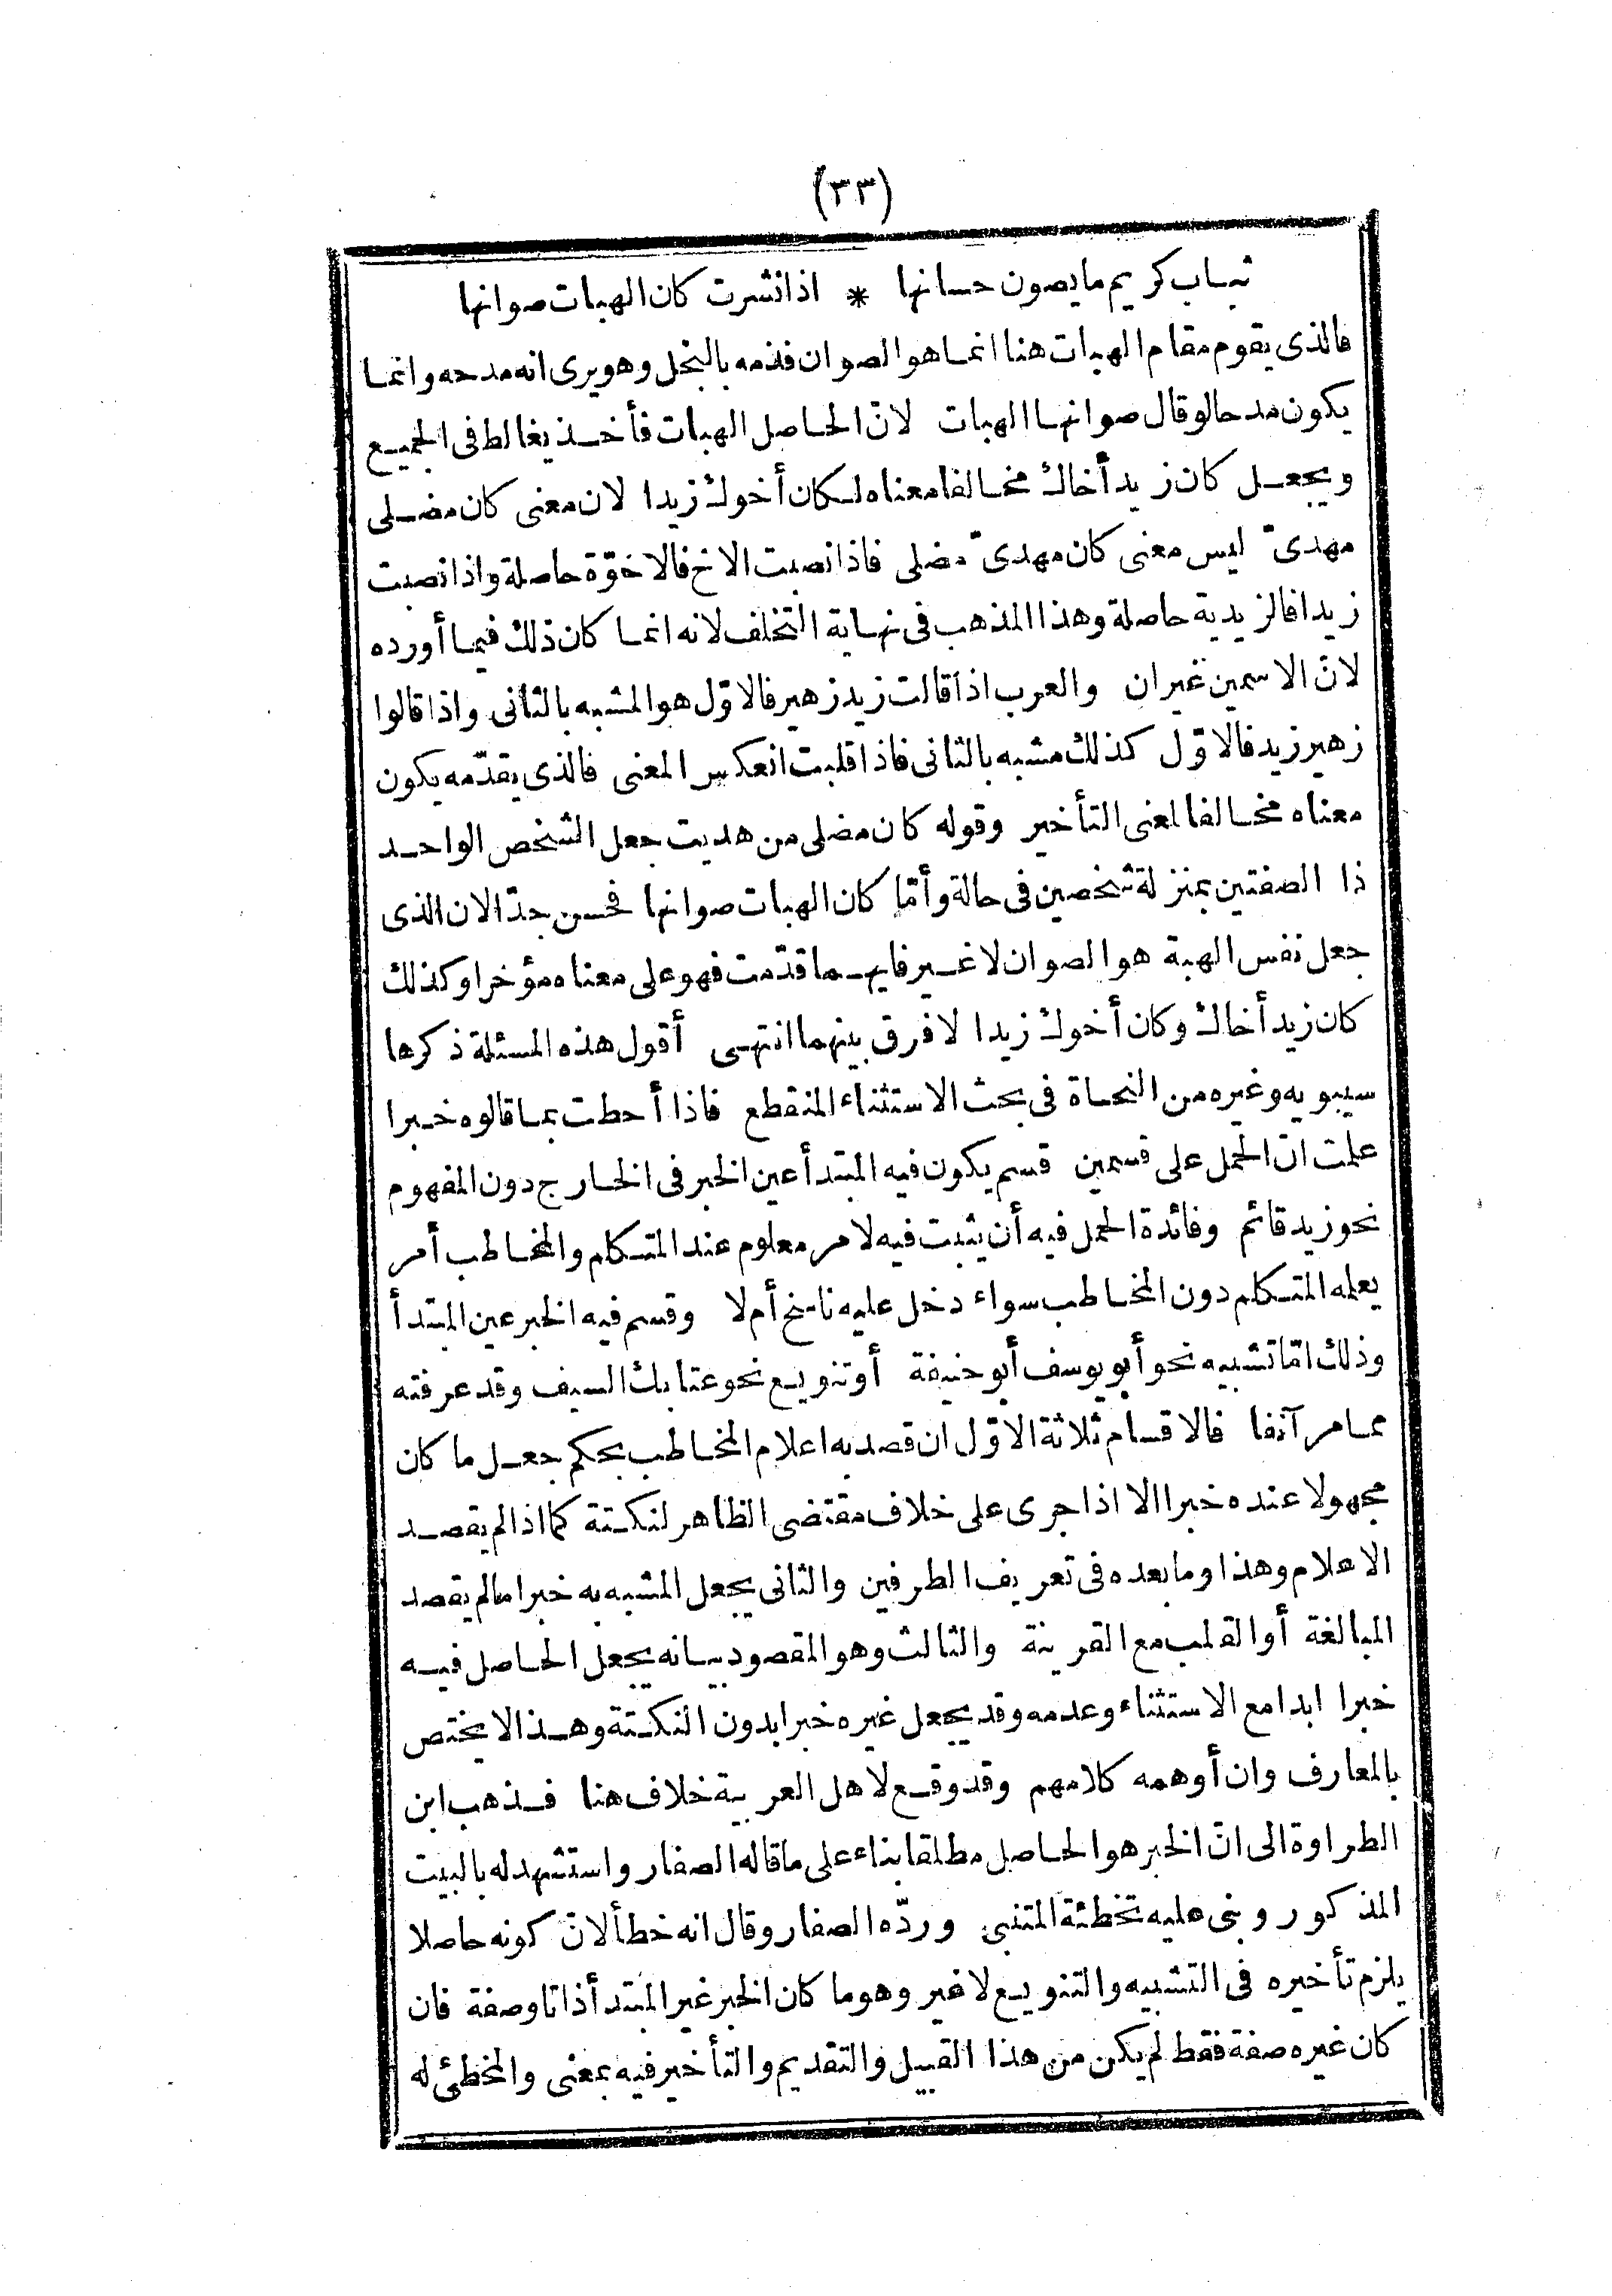 (٣٣)
ثياب كريم ما يصون حسانها * اذا نشرت كان الهبات صوانها
فالذى يقوم مقام الهبات هنا انما هو الصوان فذمه بالبخل وهو يرى انه مدحه وانما
يكون مدحا لو قال صوانها الهبات لانّ الحاصل الهبات فأخذ يغالط فى الجميع
ويجعل كان زيد أخاك مخالفا معناه لكان أخوك زيدا لان معنى كان مضلى
مهدىّ ليس معنى كان مهدىّ مضلى فاذا نصبت الاخ فالاخوّة حاصلة واذا نصبت
زيدا فالزيدية حاصلة وهذا المذهب فى نهاية التخلف لانه انما كان ذلك فيما أورده
لانّ الاسمين غيران والعرب اذا قالت زيد زهير فالاوّل هو المشبه بالثانى واذا قالوا
زهير زيد فالاوّل كذلك مشبه بالثانى فاذا قلبت انعكس المعنى فالذى يقدّمه يكون
معناه مخالفا لمعنى التأخير وقوله كان مضلى من هديت جعل الشخص الواحد
ذا الصفتين بمنزلة شخصين فى حالة وأمّا كان الهبات صوانها فحسن جدّا لان الذى
جعل نفس الهبة هو الصوان لا غير فايهما قدّمت فهو على معناه مؤخرا وكذلك
كان زيد أخاك وكان أخوك زيدا لا فرق بينهما انتهى أقول هذه المسئلة ذكرها
سيبويه وغيره من النحاة فى بحث الاستثناء المنقطع فاذا أحطت بما قالوه خبرا
علمت انّ الحمل على قسمين قسم يكون فيه المبتدأ عين الخبر فى الخارج دون المفهوم
نحو زيد قائم وفائدة الحمل فيه أن يثبت فيه لامر معلوم عند المتكلم والمخاطب أمر
يعلمه المتكلم دون المخاطب سواء دخل عليه ناسخ أم لا وقسم فيه الخبر عين المبتدأ
وذلك امّا تشبيه نحو أبو يوسف أبو حنيفة أو تنويع نحو عتابك السيف وقد عرفته
مما مر آنفا فالاقسام ثلاثة الاوّل ان قصد به اعلام المخاطب بحكم جعل ما كان
مجهولا عنده خبرا الا اذا جرى على خلاف مقتضى الظاهر لنكتة كما اذا لم يقصد
الاعلام وهذا وما بعده فى تعريف الطرفين والثانى يجعل المشبه به خبرا ما لم يقصد
المبالغة أو القلب مع القرينة والثالث وهو المقصود بيانه يجعل الحاصل فيه
خبرا ابدا مع الاستثناء وعدمه وقد يجعل غيره خبرا بدون النكتة وهذا لا يختص
بالمعارف وان أوهمه كلامهم وقد وقع لاهل العربية خلاف هنا فذهب ابن
الطراوة الى انّ الخبر هو الحاصل مطلقا بناء على ما قاله الصفار واستشهد له بالبيت
المذكور وبنى عليه تخطئة المتنبى وردّه الصفار وقال انه خطأ لانّ كونه حاصلا
يلزم تأخيره فى التشبيه والتنويع لا غير وهو ما كان الخبر غير المبتدأ ذاتا وصفة فان
كان غيره صفة فقط لم يكن من هذا القبيل والتقديم والتأخير فيه بمعنى والمخطئ له